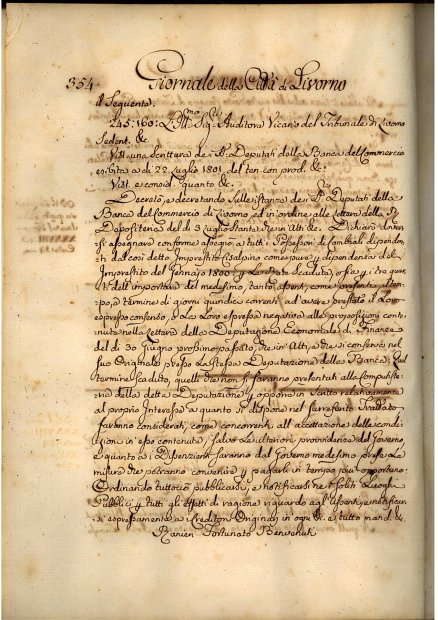 354 Giornale della Città di Livorno
il Seguente.
245:160: L'Ill:mo Sig:re Auditore Vicario del Tribunale di Livorno
Sedent. &c.
Vist. una scrittura de i SS. Deputati della Banca del Commercio
esibita a dì 22 Luglio 1801. del ten. con prod. &c:
Vist. e consid. quanto &c.
Decretò, e decretando sulle istanze de i SS. Deputati della
Banca del Commercio di Livorno, ed in ordine alla lettera della
del dì 3 Luglio stante che in Atti &c. Dichiarò doversi
assegnare conforme assegnò a tutti i Possessori di Cambiali dipendenti
dal così detto Imprestito Cisalpino come pure dipendenza del
Imprestito del Gennajo 1800: già state scadute, ossia
dell'importare del medesimo, tanto assenti, come presenti
a termine di giorni quindici correnti ad avere prestato il loro
espresso consenso, o la loro espressa negativa alle proposizioni contenute
nella lettera della Deputazione Economale di Finanze
del dì 30 Giugno prossimo passato che in Atti, e che si conserva nel
suo Originale presso la stessa Deputazione della Banca; qual
termine scaduto, quelli che non si saranno presentati alla
della detta Deputazione, e opposto in scritto relativamente
al proprio Interesse a quanto si dispone nel surriferito
saranno considerati, come concorrenti all'accettazione delle condizioni
in esso contenute, salve le ulteriori provvidenze del Governo,
e quanto a i saranno dal Governo medesimo prese le
misure che potranno convenire pagarli in tempo più opportuno
Ordinando tutto ciò pubblicarsi, e notificarsi ne i soliti Luoghi
Pubblici a tutti gli effetti di ragione riguardo agl'assenti, e notificandosi
espressamente a i Creditori Originari in ogni &c. e tutto mand. &c.
Ranieri Fortunato Benvenuti